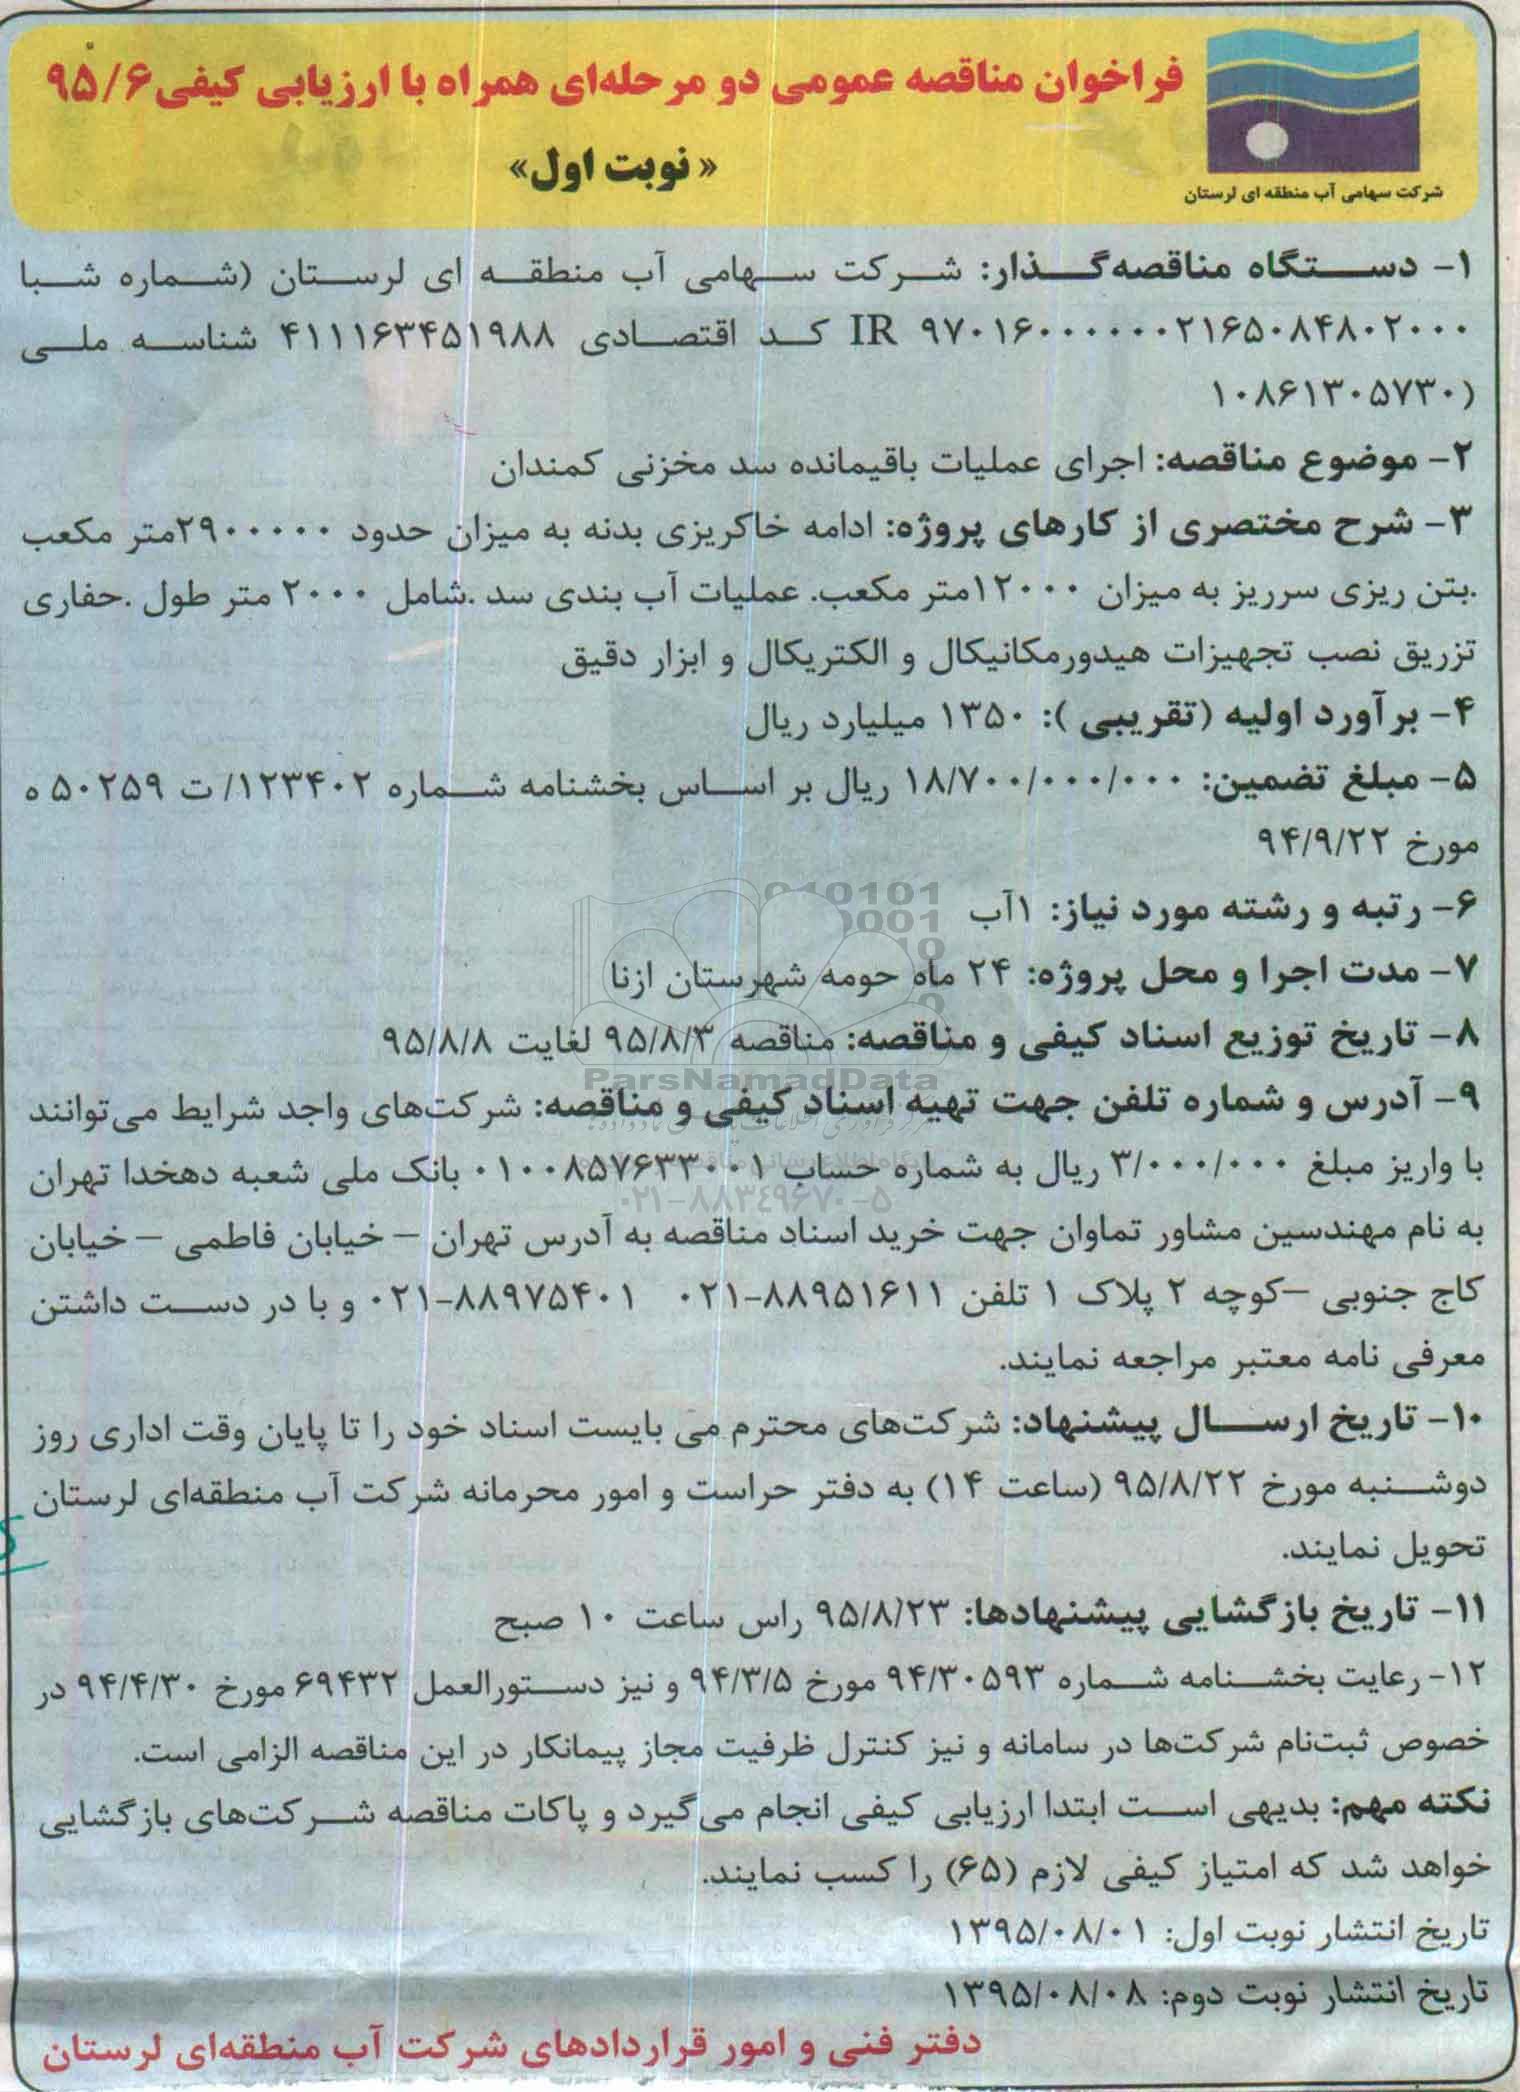 فراخوان مناقصه عمومی دو مرحله‌ای همراه با ارزیابی کیفی ۹۵/۶
«نوبت اول»
شرکت سهامی آب منطقه ای لرستان
۱- دستگاه مناقصه‌گذار: شرکت سهامی آب منطقه ای لرستان (شماره شبا
IR ۹۷۰۱۶۰۰۰۰۰۰۰۲۱۶۵۰۸۴۸۰۲۰۰۰ کد اقتصادی ۴۱۱۱۶۳۴۵۱۹۸۸ شناسه ملی
۱۰۸۶۱۳۰۵۷۳۰)
۲- موضوع مناقصه: اجرای عملیات باقیمانده سد مخزنی کمندان
۳- شرح مختصری از کارهای پروژه: ادامه خاکریزی بدنه به میزان حدود ۲۹۰۰۰۰۰متر مکعب
.بتن ریزی سرریز به میزان ۱۲۰۰۰متر مکعب. عملیات آب بندی سد .شامل ۲۰۰۰ متر طول .حفاری
تزریق نصب تجهیزات هیدورمکانیکال و الکتریکال و ابزار دقیق
۴- برآورد اولیه (تقریبی ): ۱۳۵۰ میلیارد ریال
۵- مبلغ تضمین: ۱۸/۷۰۰/۰۰۰/۰۰۰ ریال بر اساس بخشنامه شماره ۱۲۳۴۰۲/ ت ۵۰۲۵۹ ه
مورخ ۹۴/۹/۲۲
۶- رتبه و رشته مورد نیاز: ۱آب
۷- مدت اجرا و محل پروژه: ۲۴ ماه حومه شهرستان ازنا
۸- تاریخ توزیع اسناد کیفی و مناقصه: مناقصه ۹۵/۸/۳ لغایت ۹۵/۸/۸
ParsNamadData
۹- آدرس و شماره تلفن جهت تهیه اسناد کیفی و مناقصه: شرکت‌های واجد شرایط می‌توانند
با واریز مبلغ ۳/۰۰۰/۰۰۰ ریال به شماره حساب ۰۱۰۰۸۵۷۶۳۳۰۰۱ بانک ملی شعبه دهخدا تهران
۰۲۱-۸۸۳۴۹۶۷۰-۵
به نام مهندسین مشاور تماوان جهت خرید اسناد مناقصه به آدرس تهران – خیابان فاطمی – خیابان
کاج جنوبی –کوچه ۲ پلاک ۱ تلفن ۸۸۹۵۱۶۱۱-۰۲۱ ۸۸۹۷۵۴۰۱-۰۲۱ و با در دست داشتن
معرفی نامه معتبر مراجعه نمایند.
۱۰- تاریخ ارسال پیشنهاد: شرکت‌های محترم می بایست اسناد خود را تا پایان وقت اداری روز
دوشنبه مورخ ۹۵/۸/۲۲ (ساعت ۱۴) به دفتر حراست و امور محرمانه شرکت آب منطقه‌ای لرستان
تحویل نمایند.
۱۱- تاریخ بازگشایی پیشنهادها: ۹۵/۸/۲۳ راس ساعت ۱۰ صبح
۱۲- رعایت بخشنامه شماره ۹۴/۳۰۵۹۳ مورخ ۹۴/۳/۵ و نیز دستورالعمل ۶۹۴۳۲ مورخ ۹۴/۴/۳۰ در
خصوص ثبت‌نام شرکت‌ها در سامانه و نیز کنترل ظرفیت مجاز پیمانکار در این مناقصه الزامی است.
نکته مهم: بدیهی است ابتدا ارزیابی کیفی انجام می‌گیرد و پاکات مناقصه شرکت‌های بازگشایی
خواهد شد که امتیاز کیفی لازم (۶۵) را کسب نمایند.
تاریخ انتشار نوبت اول: ۱۳۹۵/۰۸/۰۱
تاریخ انتشار نوبت دوم: ۱۳۹۵/۰۸/۰۸
دفتر فنی و امور قراردادهای شرکت آب منطقه‌ای لرستان